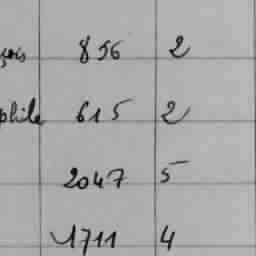 çois 856 2
phile 615 2
2047 5
1711 4